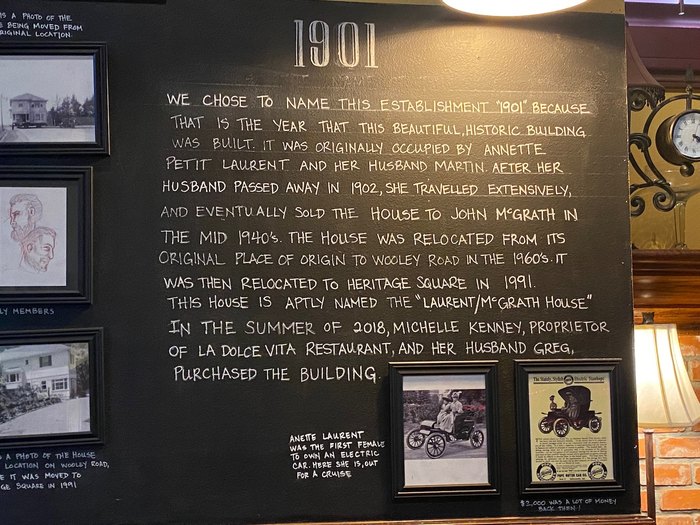 1901
WE CHOSE TO NAME THIS ESTABLISHMENT "1901" BECAUSE
THAT IS THE YEAR THAT THIS BEAUTIFUL, HISTORIC BUILDING
WAS BUILT. IT WAS ORIGINALLY OCCUPIED BY ANNETTE
PETIT LAURENT AND HER HUSBAND MARTIN. AFTER HER
HUSBAND PASSED AWAY IN 1902, SHE TRAVELLED EXTENSIVELY,
AND EVENTUALLY SOLD THE HOUSE TO JOHN McGRATH IN
THE MID 1940's. THE HOUSE WAS RELOCATED FROM ITS
ORIGINAL PLACE OF ORIGIN TO WOOLEY ROAD IN THE 1960's. IT
WAS THEN RELOCATED TO HERITAGE SQUARE IN 1991.
THIS HOUSE IS APTLY NAMED THE "LAURENT/McGRATH HOUSE"
IN THE SUMMER OF 2018, MICHELLE KENNEY, PROPRIETOR
OF LA DOLCE VITA RESTAURANT, AND HER HUSBAND GREG,
PURCHASED THE BUILDING.
IS A PHOTO OF THE
BEING MOVED FROM
ORIGINAL LOCATION.
LY MEMBERS
A PHOTO OF THE HOUSE
LOCATION ON WOOLEY ROAD,
IT WAS MOVED TO
GE SQUARE IN 1991
ANETTE LAURENT
WAS THE FIRST FEMALE
TO OWN AN ELECTRIC
CAR. HERE SHE IS, OUT
FOR A CRUISE
The Handy, Stylish Electric Stanhope
POPE MOTOR CAR CO.
$2,000 WAS A LOT OF MONEY
BACK THEN!